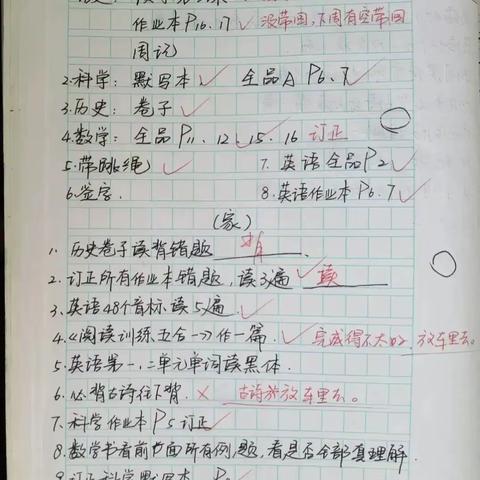 作业本 P16、17 ✓ 没带回,下周有空带回
周记
2.科学: 默写本 ✓ 全品A P6、7 ✓
3.历史: 卷子 ✓
4.数学: 全品 P11、12、15、16 订正
5.带跳绳 ✓ 7. 英语全品P2 ✓
6.签字. 8.英语作业本 P6.7 ✓
(家)
1. 历史卷子读背错题 背 .
2. 订正所有作业本错题,读3遍 ✓ 读
3.英语48个音标读5遍. ✓
4.《阅读训练五合一》作一篇. ✓ 完成得不太好,放车里去。
5.英语第一、二单元单词读黑体.
6.必背古诗往下背. × 古诗放车里去。
7.科学作业本P5订正 ✓
8.数学书看前 面所有例题,看是否全部真理解.
9.订正科学默写本